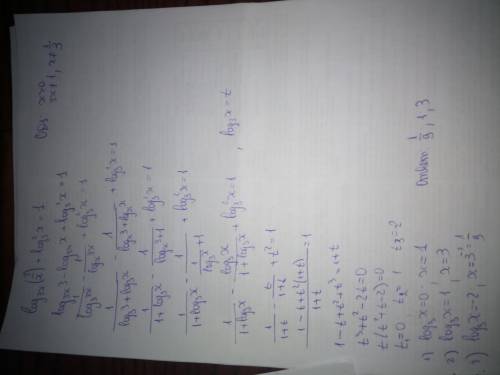 log₃ₓ(3/x) + log₃²x = 1 ОДЗ: x>0
log₃ₓ3 - log₃ₓx + log₃²x = 1 3x≠1, x≠1/3
1/log₃3x - 1/logₓ3x + log₃²x = 1
1/(log₃3+log₃x) - 1/(logₓ3+logₓx) + log₃²x = 1
1/(1+log₃x) - 1/(logₓ3+1) + log₃²x = 1
1/(1+log₃x) - 1/(1/log₃x+1) + log₃²x = 1
1/(1+log₃x) - log₃x/(1+log₃x) + log₃²x = 1 , log₃x = t
1/(1+t) - t/(1+t) + t² = 1
(1-t+t²(1+t))/(1+t) = 1
1-t+t²+t³ = 1+t
t³+t²-2t=0
t(t²+t-2)=0
t₁=0, t₂=1 t₃=-2
1) log₃x=0 x=1
2) log₃x=1, x=3
3) log₃x=-2, x=3⁻²=1/9 1/9, 1, 3